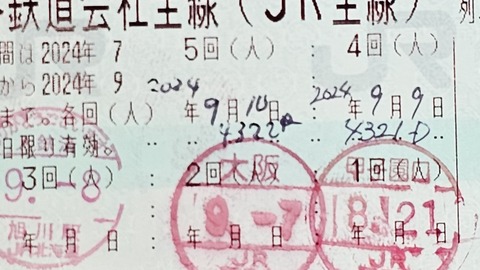 鉄道会社全線(JR全線) 列
間は 2024年 7 5回(人) : 4回(人) :
から 2024年 9 2024 年 9月10日 : 2024 年 9月9日
まで。各回(人) 4322D 4321D
日限り有効。
3回(人) : 2回(人) : 1回(人) :
9.-8 大阪 9.-7 8.21
旭川駅 JR JR
年 月 日 : 年 月 日 : 年 月 日